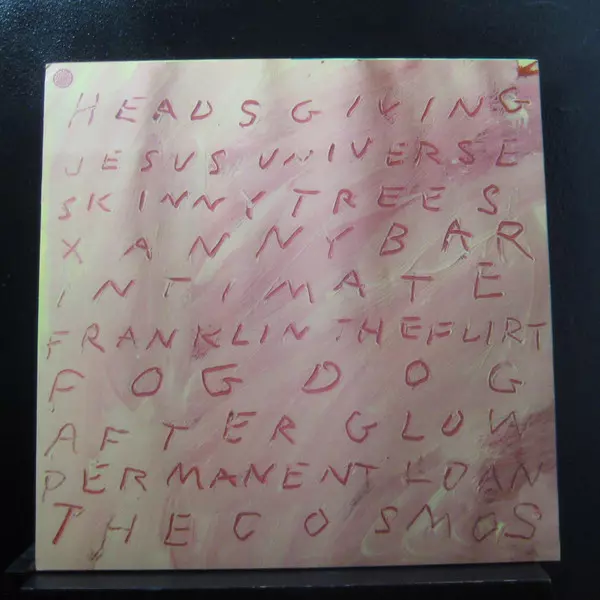 HEADS GIVING
JESUS UNIVERSE
SKINNY TREES
XANNY BAR
INTIMATE
FRANKLIN THE FLIRT
FOG DOG
AFTER GLOW
PERMANENT LOAN
THE COSMOS